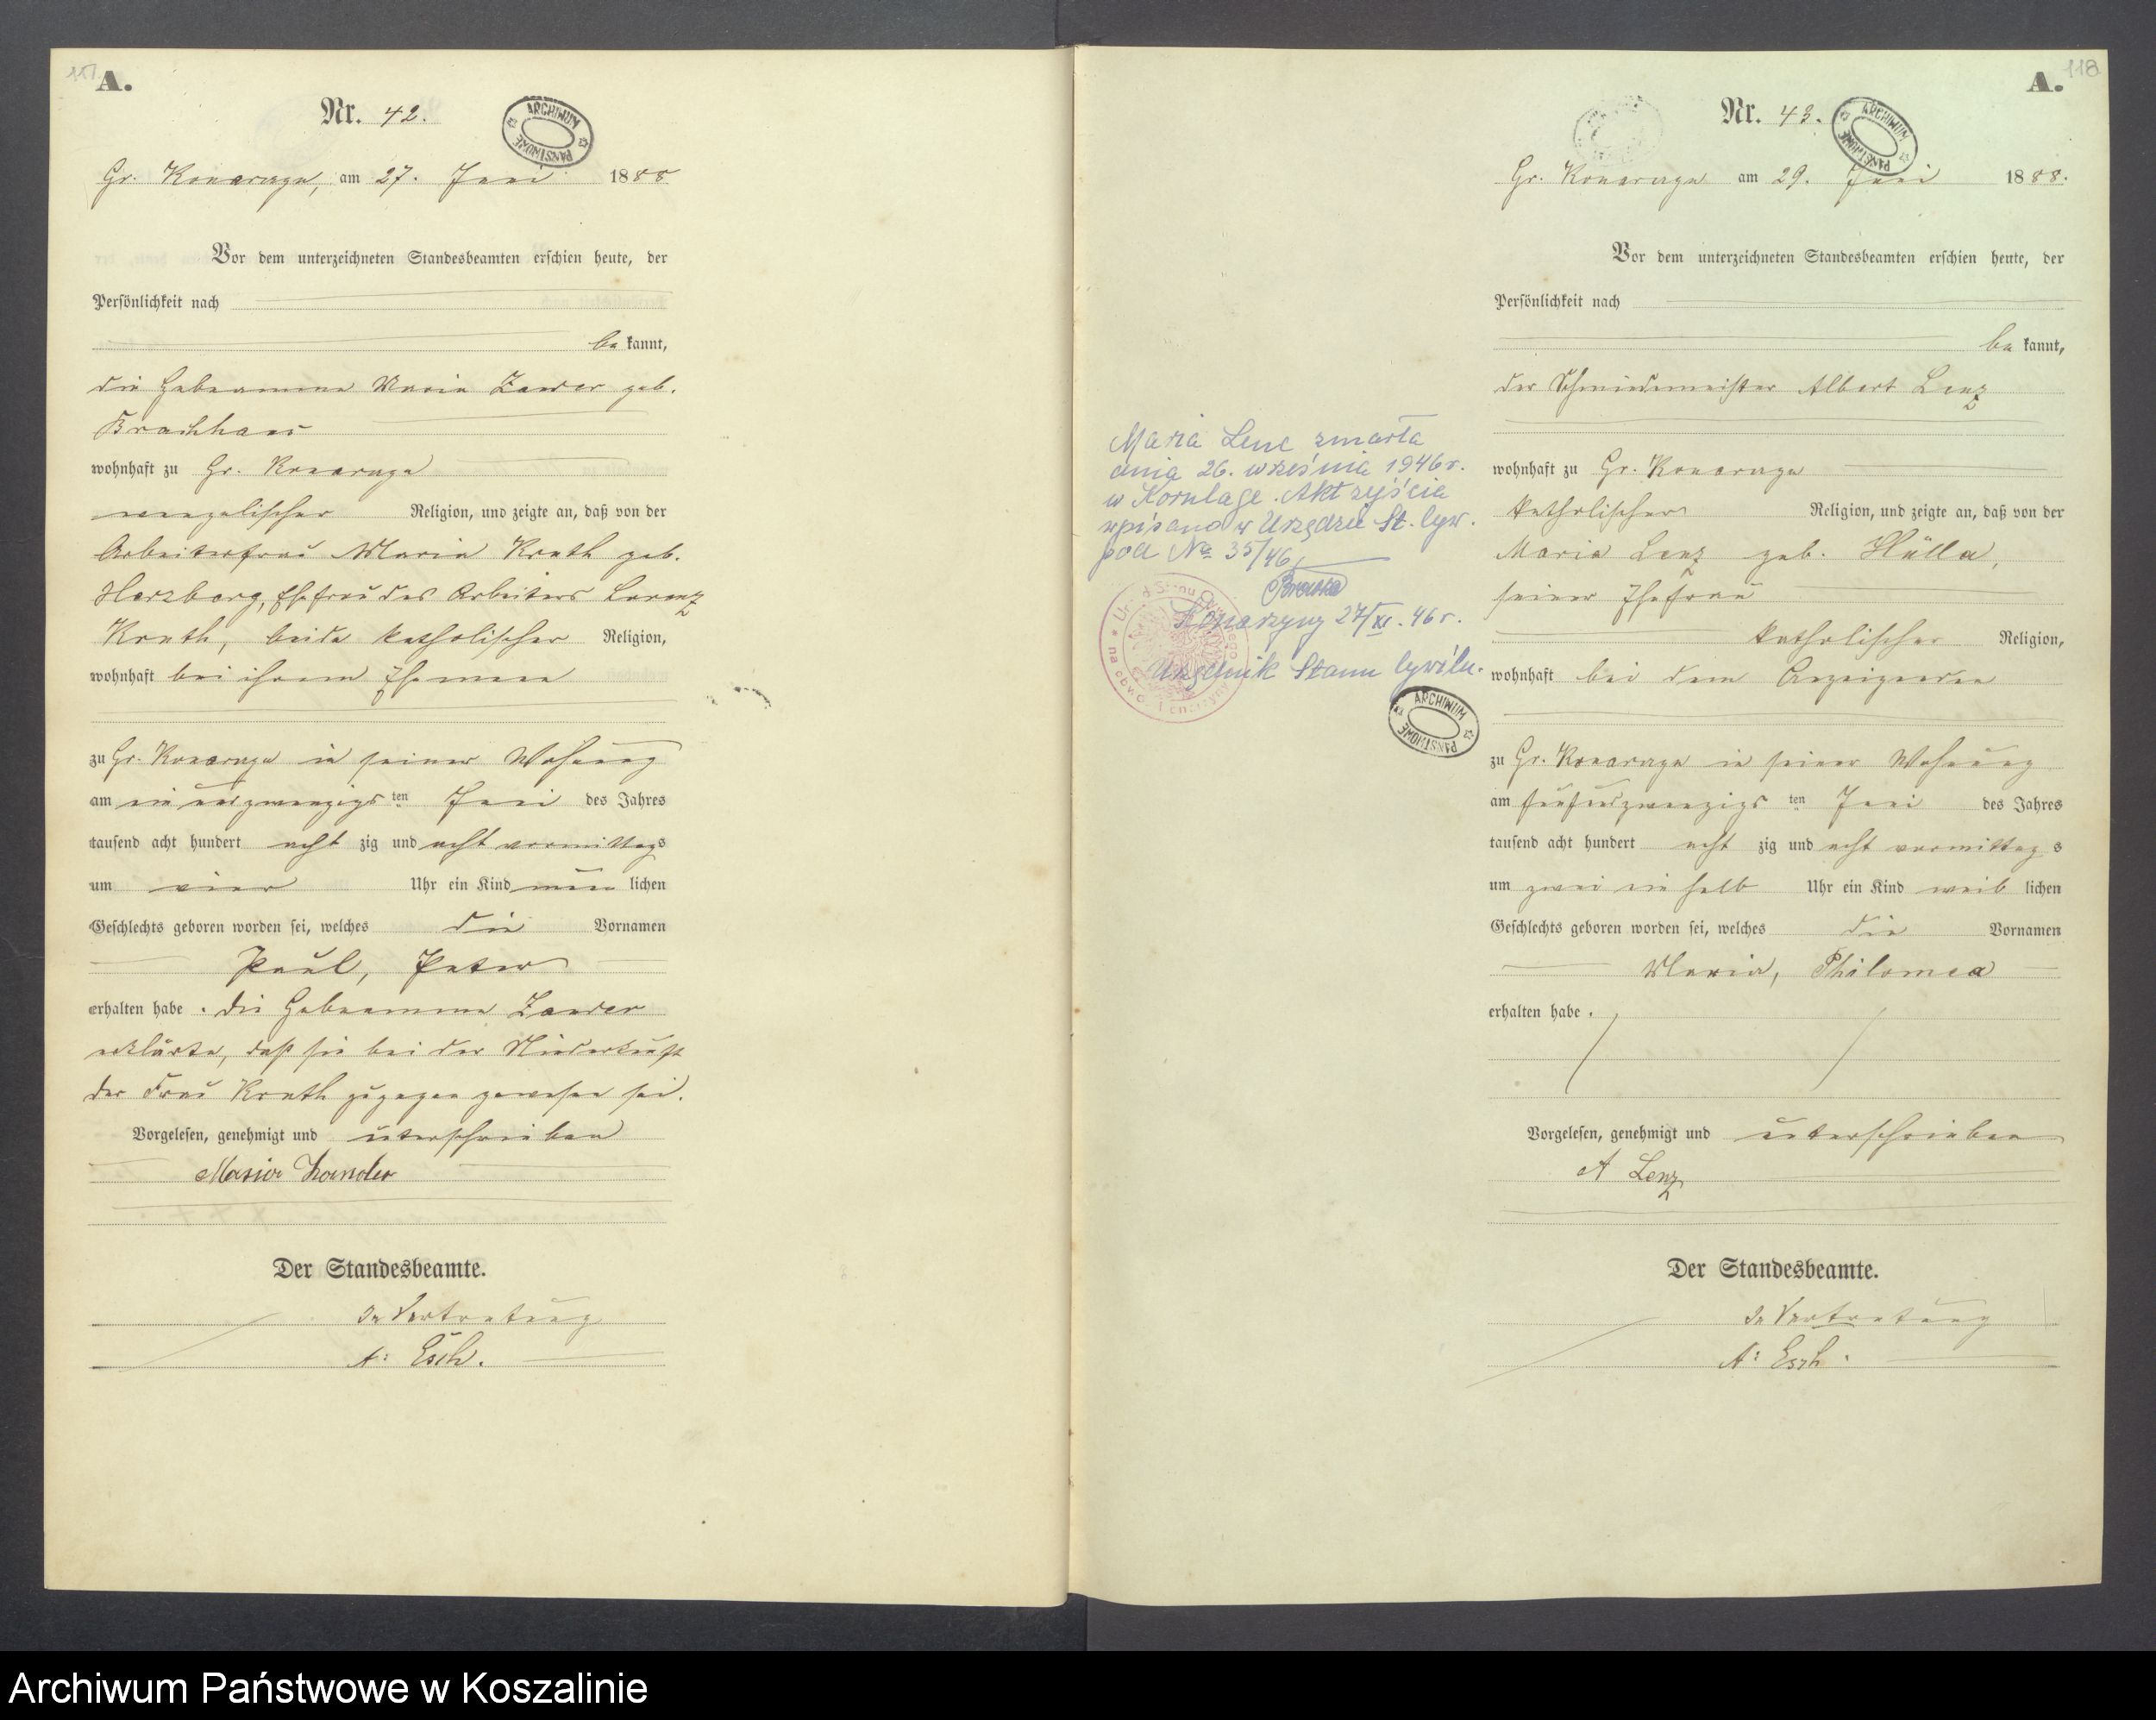 117
A.
Nr. 42.
ARCHIWUM PAŃSTWOWE
Gr. Konarzyn, am 27. Juni 1888
Vor dem unterzeichneten Standesbeamten erschien heute, der
Persönlichkeit nach
be kannt,
die Hebeamme Maria Zander geb.
Brackhaus
wohnhaft zu Gr. Konarzyn
evangelischer Religion, und zeigte an, daß von der
Arbeiterfrau Maria Knuth geb.
Herzberg, Ehefrau des Arbeiters Lorenz
Knuth, beide katholischer Religion,
wohnhaft bei ihrem Ehemann
zu Gr. Konarzyn in seiner Wohnung
am ein und zwanzigs ten Juni des Jahres
tausend acht hundert acht zig und acht vormittags
um vier Uhr ein Kind män lichen
Geschlechts geboren worden sei, welches die Vornamen
Paul, Peter
erhalten habe. die Hebeamme Zander
erklärte, daß sie bei der Niederkunft
der Frau Knuth zugegen gewesen sei.
Vorgelesen, genehmigt und unterschrieben
Maria Zander
Der Standesbeamte.
In Vertretung
A: Esch.
118
A.
Nr. 43.
ARCHIWUM PAŃSTWOWE
Gr. Konarzyn am 29. Juni 1888.
Vor dem unterzeichneten Standesbeamten erschien heute, der
Persönlichkeit nach
be kannt,
der Schmiedemeister Albert Lenz
wohnhaft zu Gr. Konarzyn
katholischer Religion, und zeigte an, daß von der
Maria Lenz geb. Hülla,
seiner Ehefrau
katholischer Religion,
wohnhaft bei dem Anzeigenden
zu Gr. Konarzyn in seiner Wohnung
am fünfundzwanzigs ten Juni des Jahres
tausend acht hundert acht zig und acht vormittag s
um zwei ein halb Uhr ein Kind weib lichen
Geschlechts geboren worden sei, welches die Vornamen
Maria, Philomea
erhalten habe.
Vorgelesen, genehmigt und unterschrieben
A Lenz
Der Standesbeamte.
In Vertretung
A: Esch.
Maria Lenc zmarła
dnia 26. września 1946 r.
w Kornlage. Akt zejścia
wpisano w Urzędzie St. Cyw.
pod No 35/46
Konarzyny 27/XI. 46 r.
Urzędnik Stanu Cywiln.
ARCHIWUM PAŃSTWOWE
Archiwum Państwowe w Koszalinie